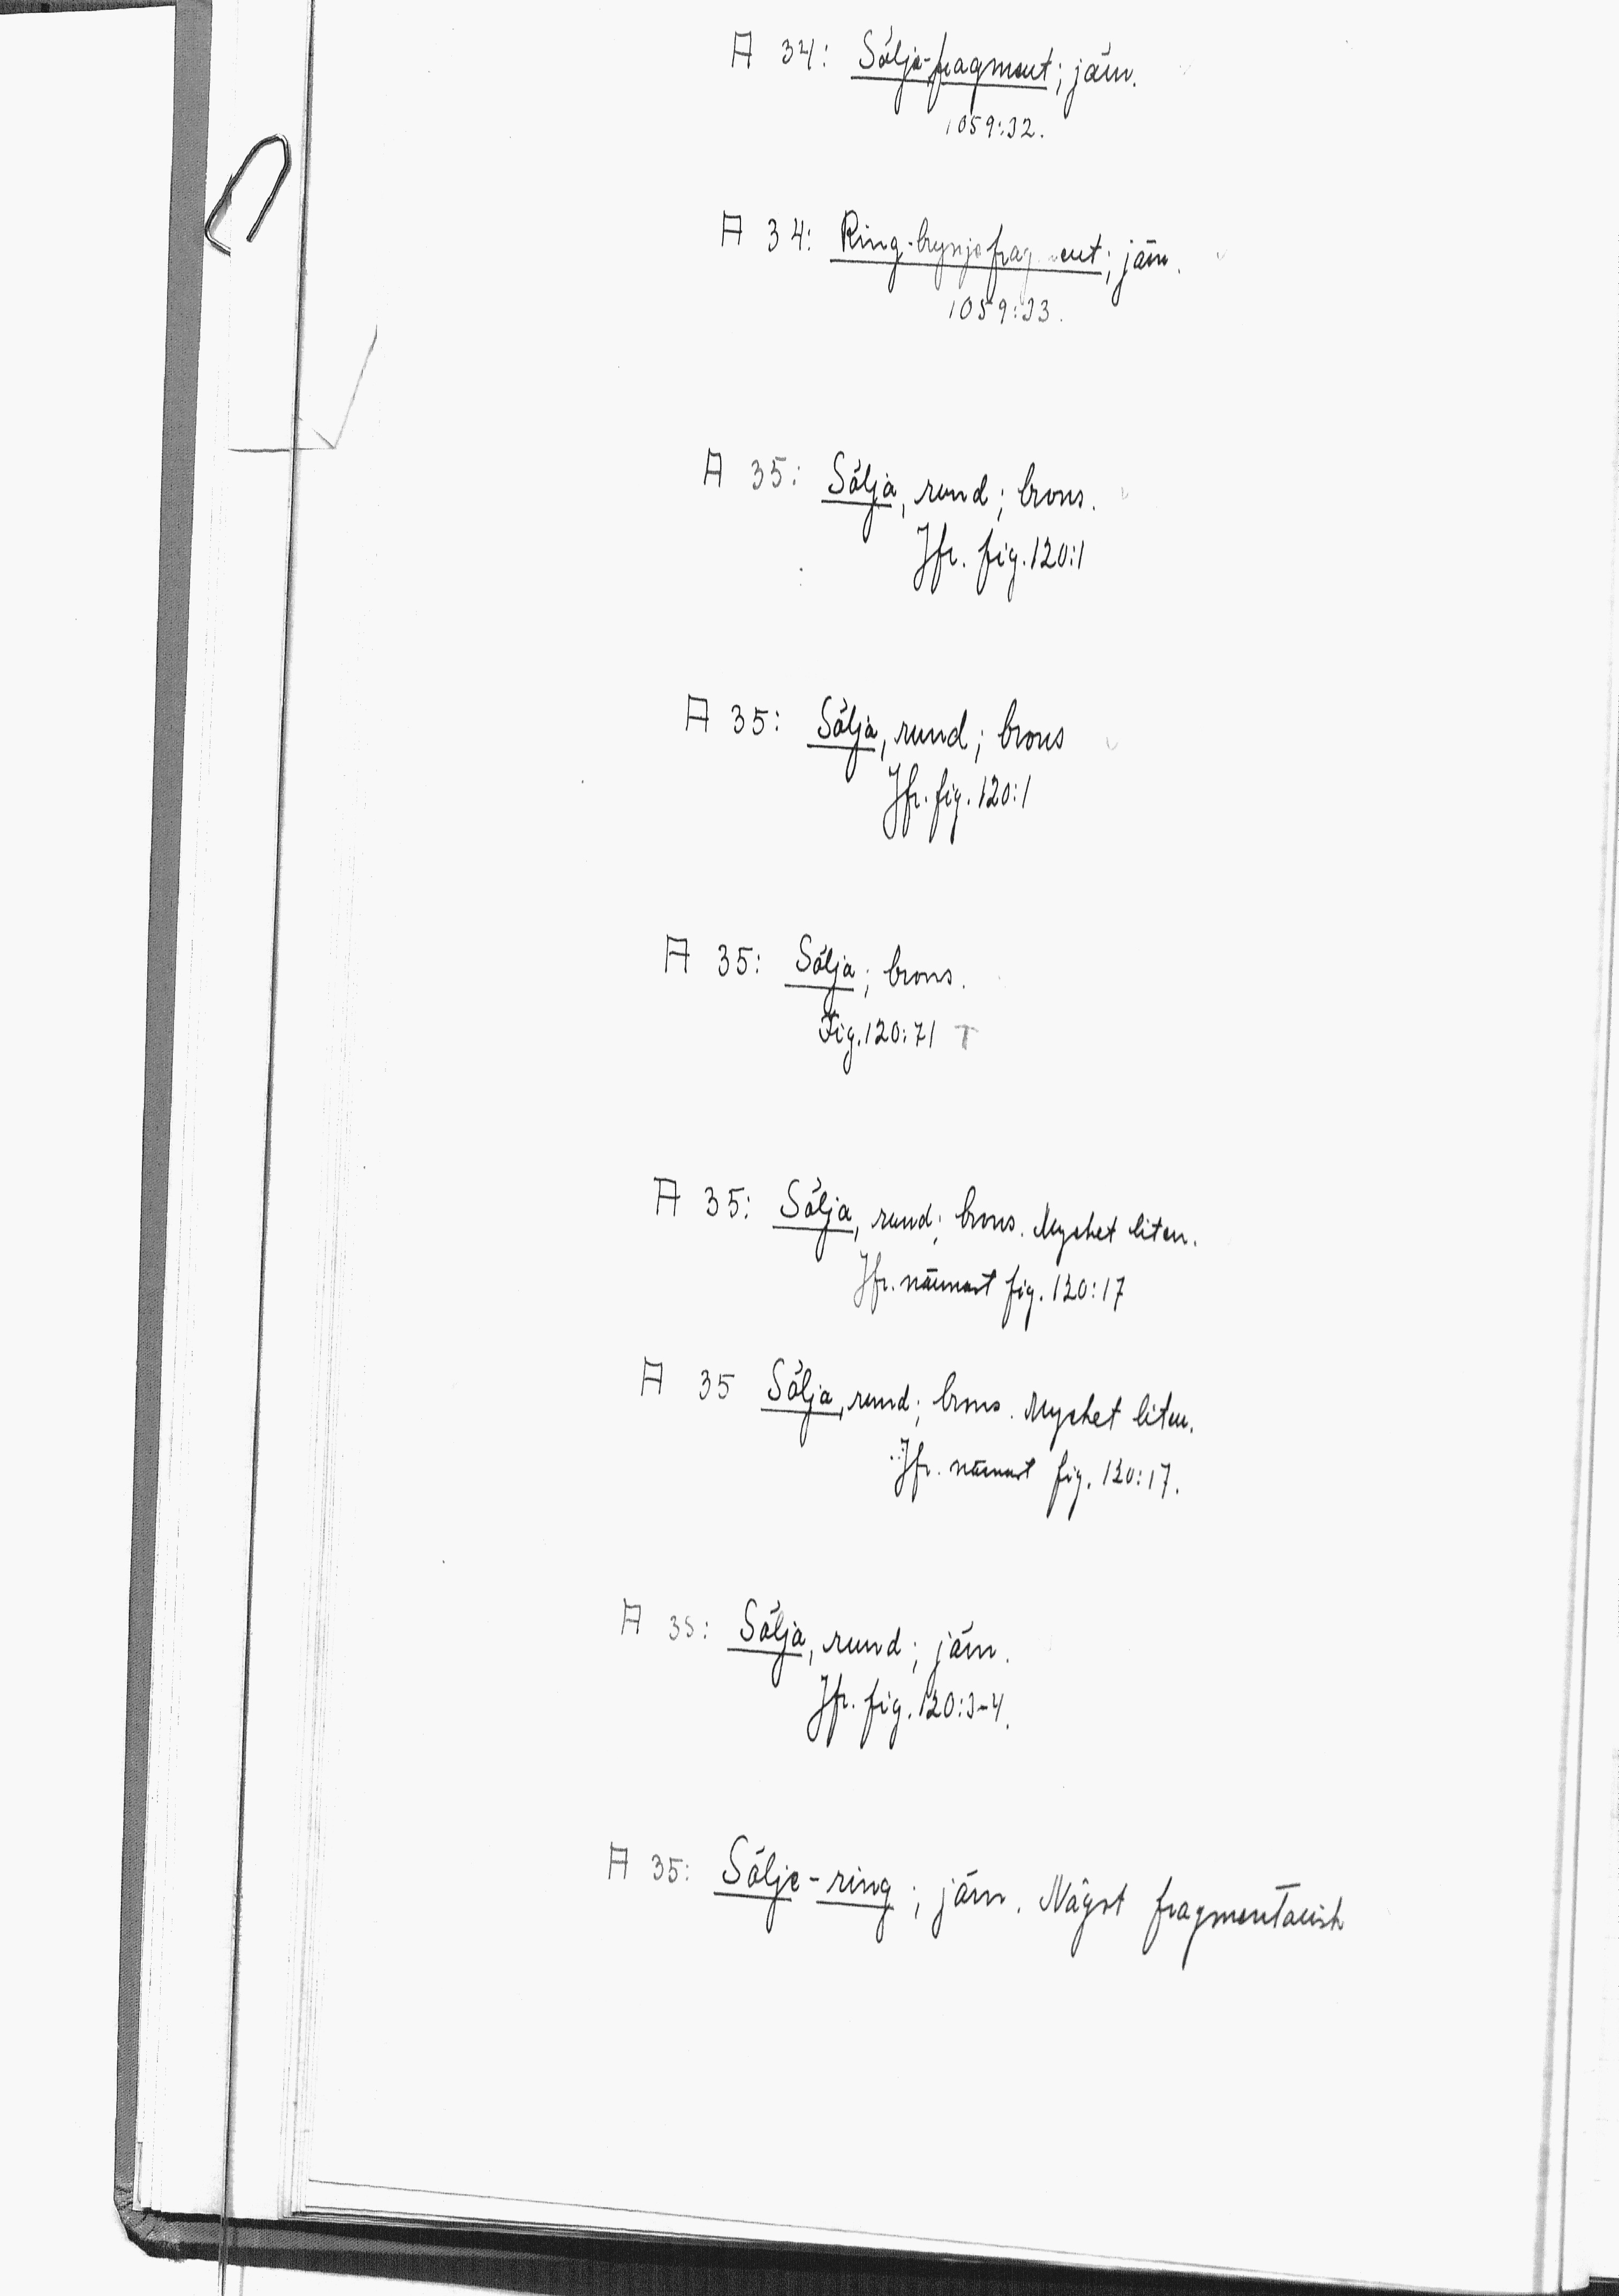 A 34: Sölje-fragment; järn.
1059:32.
A 34: Ring-brynjefragment; järn.
1059:33.
A 35: Sölja, rund; brons.
Jfr. fig. 120:1
A 35: Sölja, rund; brons
Jfr. fig. 120:1
A 35: Sölja; brons.
Fig. 120:71 T
A 35: Sölja, rund; brons. Mycket liten.
Jfr. närmast fig. 120:17
A 35 Sölja, rund; brons. Mycket liten.
Jfr. närmast fig. 120:17.
A 35: Sölja, rund; järn.
Jfr. fig. 120:3-4.
A 35: Sölje-ring; järn. Något fragmentarisk